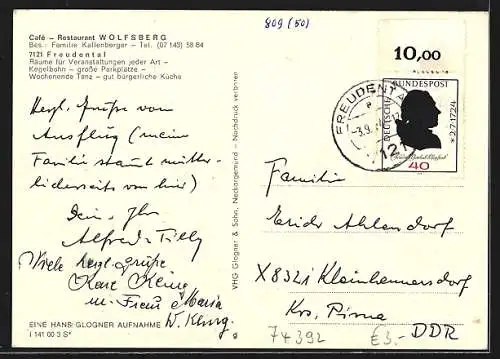 Café – Restaurant WOLFSBERG
Bes.: Familie Kallenberger – Tel. (07 143) 58 84
7121 Freudental
Räume für Veranstaltungen jeder Art –
Kegelbahn – große Parkplätze –
Wochenende Tanz – gut bürgerliche Küche
809 (50)
10,00
DEUTSCHE BUNDESPOST
* 2.7.1724
40
FREUDENTAL
-3.9.
712
Herzl. Grüße vom
Ausflug (meine
Familie stammt mütter-
licherseits von hier)
Dein
Alfred
Viele herzl. Grüße
Karl König
u. Frau Maria
Familie
Erich Ahlendorf
X8321 Kleinhennersdorf
Krs. Pirna
DDR
VHG Glogner & Sohn, Neckargemünd – Nachdruck verboten
EINE HANS GLOGNER AUFNAHME
I 141 00 3 S*
74392
€3.-